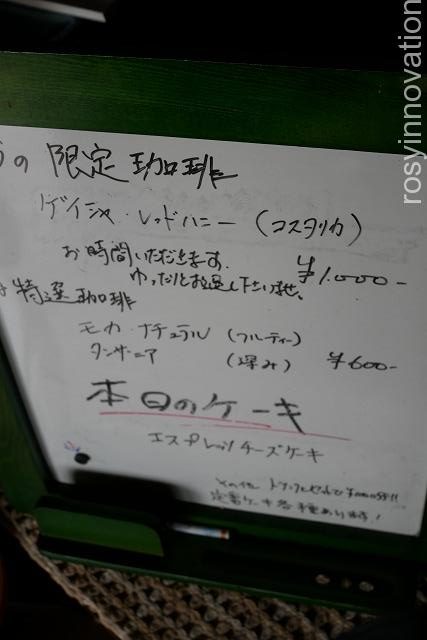 rosyinnovation
の 限定 珈琲
ゲイシャ・レッドハニー (コスタリカ)
お時間いただきます.
ゆったりとお過し下さいませ、 ¥1.000-
特選珈琲
モカ・ナチュラル (フルーティー)
タンザニア (深み) ¥600-
本日のケーキ
エスプレッソチーズケーキ
その他
定番ケーキ各種あります!